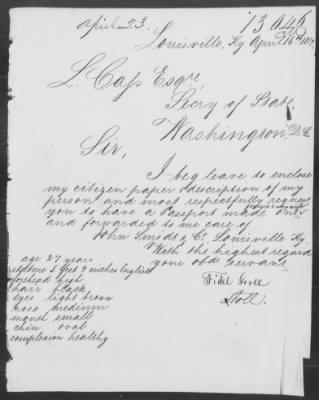 April 23.
13646
Louisville, Ky April 16th
L. Cass Esqr,
Secry of State,
Washington, D.C.
Sir,
I beg leave to enclose
my citizen paper & description of my
person and most respectfully request
you to have a Passport made out
and forwarded to me care of
John Smidt & Co, Louisville Ky
With the highest regard
your obd servant
Fidel
age 27 years
5 feet 9 inches english
forehead high
hair black
eyes light brown
nose medium
mouth small
chin oval
complexion healthy